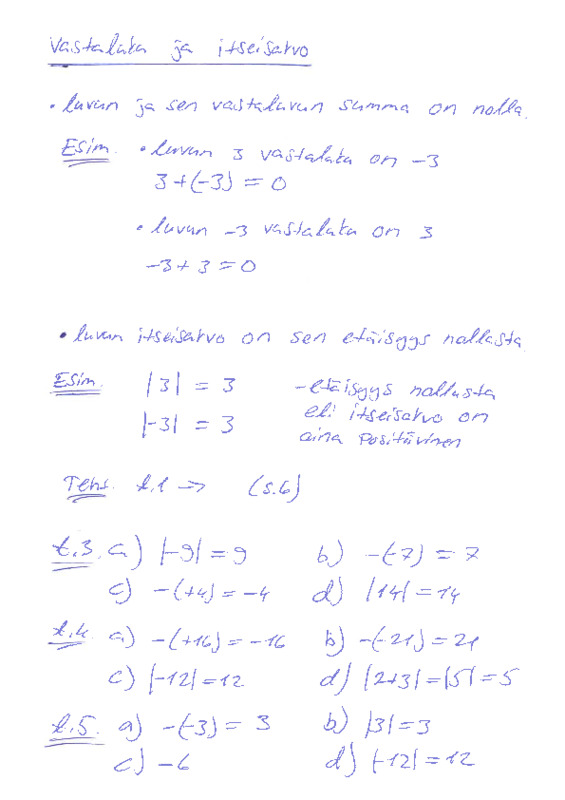 Vastaluku ja itseisarvo
• luvun ja sen vastaluvun summa on nolla.
Esim. • luvun 3 vastaluku on -3
3+(-3) = 0
• luvun -3 vastaluku on 3
-3+3 = 0
• luvun itseisarvo on sen etäisyys nollasta
Esim. |3| = 3 - etäisyys nollasta
|-3| = 3 eli itseisarvo on
aina positiivinen
Teht. t.1 -> (s.6)
t.3. a) |-9| = 9 b) -(-7) = 7
c) -(+4) = -4 d) |14| = 14
t.4. a) -(+16) = -16 b) -(-21) = 21
c) |-12| = 12 d) |2+3| = |5| = 5
t.5. a) -(-3) = 3 b) |3| = 3
c) -6 d) |-12| = 12